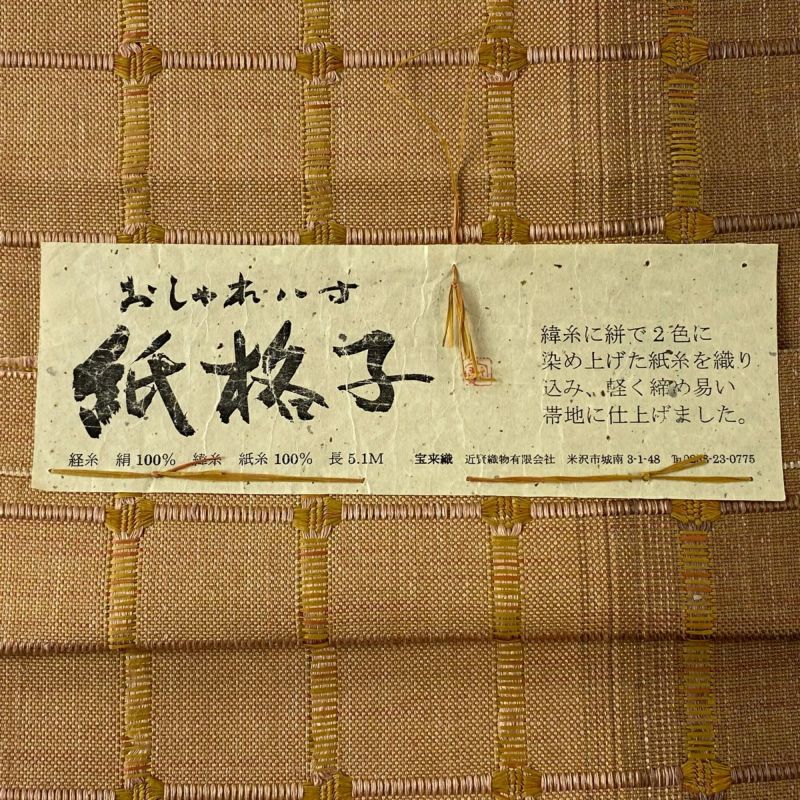 おしゃれ八寸
紙格子
緯糸に絣で２色に
染め上げた紙糸を織り
込み、軽く締め易い
帯地に仕上げました。
経糸 絹100% 緯糸 紙糸100% 長5.1M 宝来織 近賢織物有限会社 米沢市城南3-1-48 ℡0238-23-0775